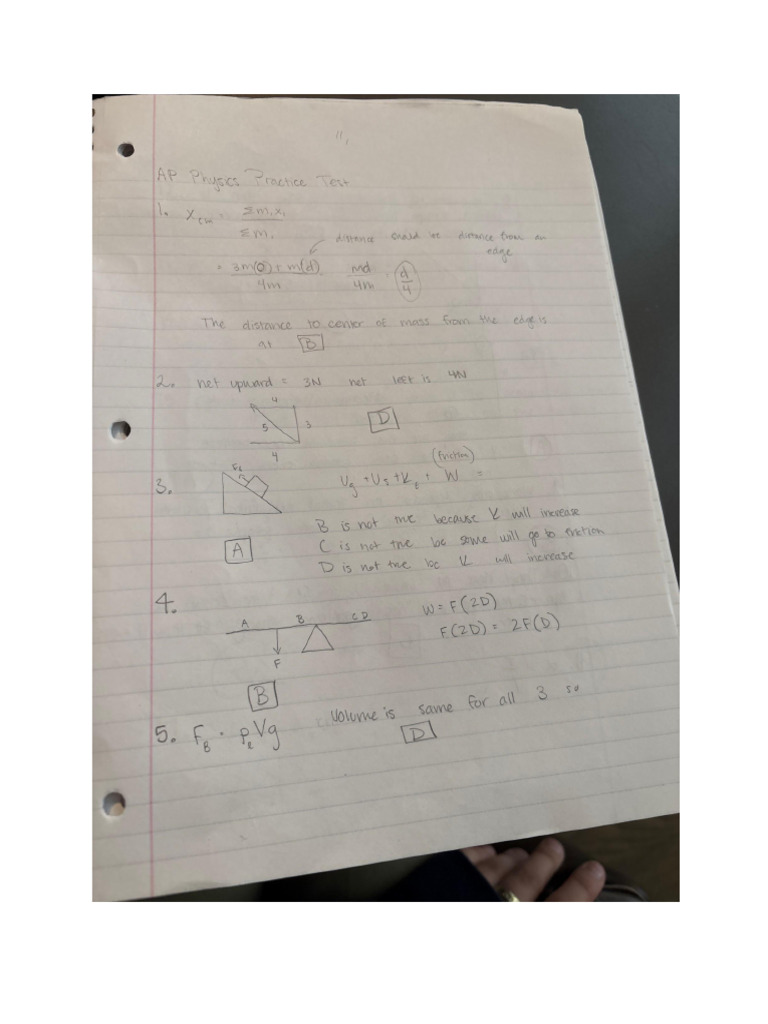 AP Physics Practice Test
1. X_cm = Σm₁x₁ / Σm₁
distance could be distance from an edge
= 3m(0) + m(d) / 4m   md / 4m · d / 4
The distance to center of mass from the edge is
at B
2. net upward = 3N net left is 4N
4
5 3
4
D
3.
(friction)
U_g + U_s + K_t + W =
B is not me because K will increase
A
C is not the bc some will go to friction
D is not the bc K will increase
4.
A B C D
F
W = F(2D)
F(2D) = 2F(D)
B
5. F_B · ρ Vg
Volume is same for all 3 so
D